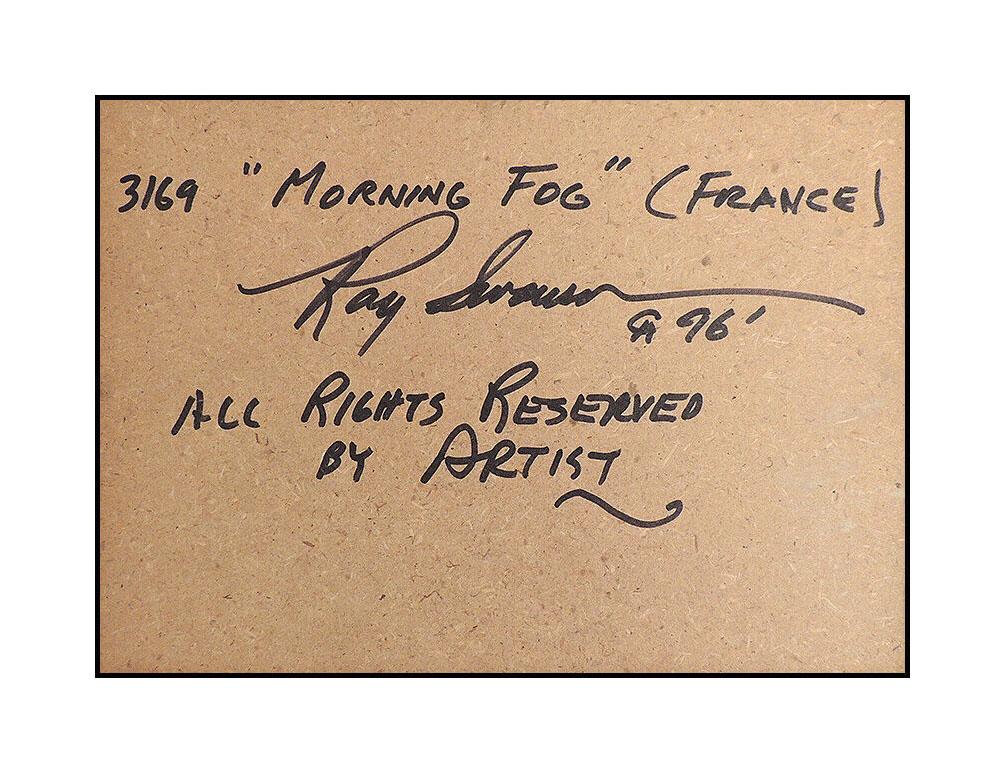 3169 "MORNING FOG" (FRANCE)
Ray Swanson
CA 96'
ALL RIGHTS RESERVED
BY ARTIST